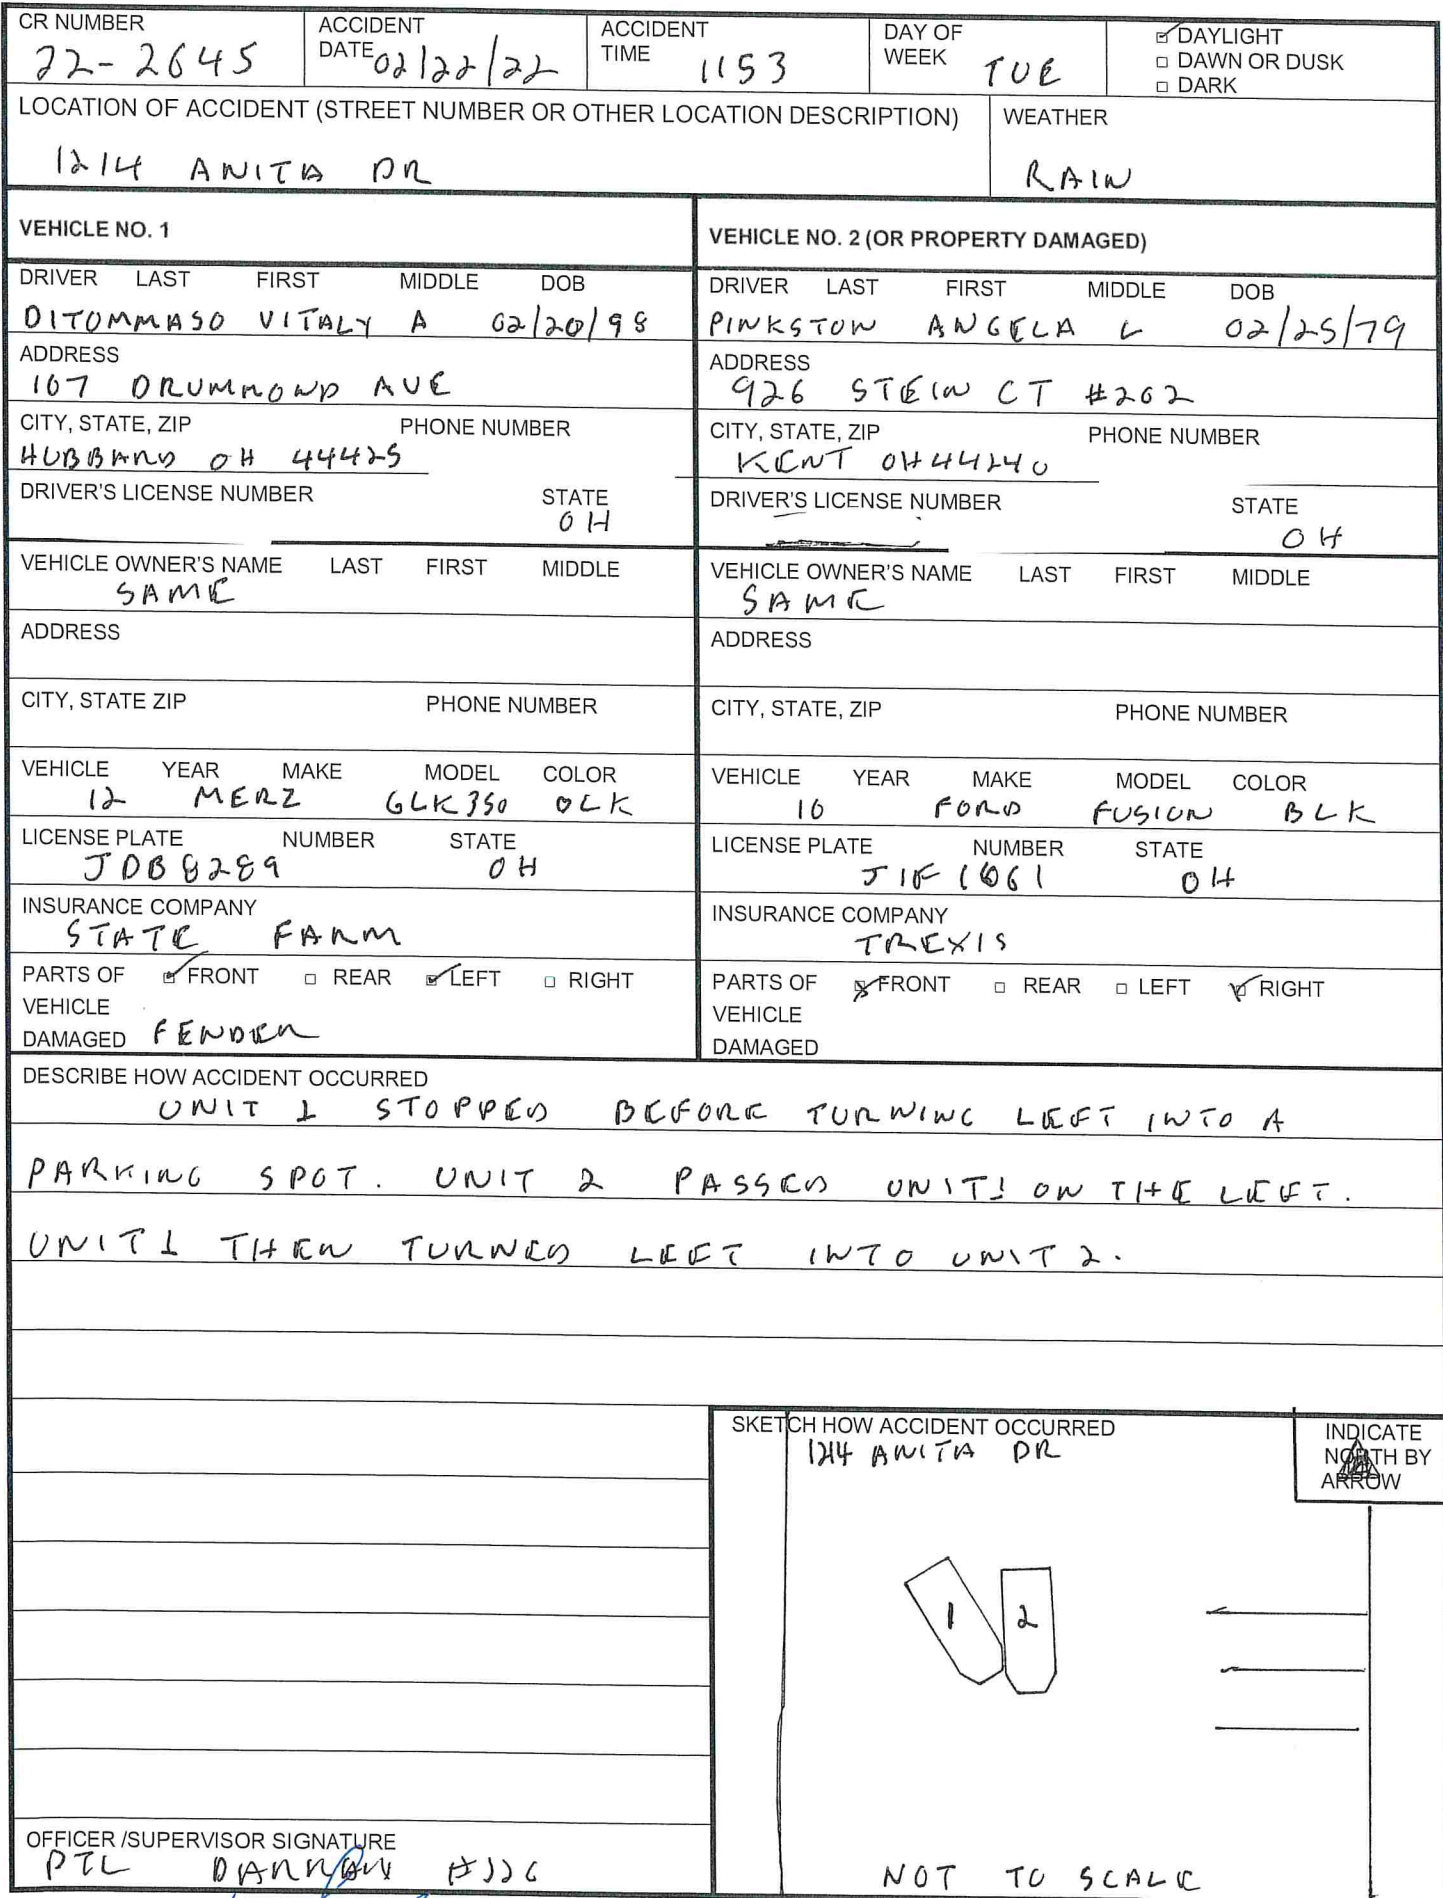 CR NUMBER
22-2645
ACCIDENT
DATE 02/22/22
ACCIDENT
TIME 1153
DAY OF
WEEK TUE
DAYLIGHT
DAWN OR DUSK
DARK
LOCATION OF ACCIDENT (STREET NUMBER OR OTHER LOCATION DESCRIPTION)
1214 ANITA DR
WEATHER
RAIN
VEHICLE NO. 1
DRIVER LAST FIRST MIDDLE DOB
DITOMMASO VITALY A 02/20/98
ADDRESS
167 DRUMMOND AVE
CITY, STATE, ZIP PHONE NUMBER
HUBBARD OH 44425
DRIVER'S LICENSE NUMBER STATE
OH
VEHICLE OWNER'S NAME LAST FIRST MIDDLE
SAME
ADDRESS
CITY, STATE ZIP PHONE NUMBER
VEHICLE YEAR MAKE MODEL COLOR
12 MERZ GLK350
LICENSE PLATE NUMBER STATE
JDB8289 OH
INSURANCE COMPANY
STATE FARM
PARTS OF FRONT REAR LEFT RIGHT
VEHICLE
DAMAGED FENDER
VEHICLE NO. 2 (OR PROPERTY DAMAGED)
DRIVER LAST FIRST MIDDLE DOB
PINKSTON ANGELA L 02/25/79
ADDRESS
926 STEIN CT #202
CITY, STATE, ZIP PHONE NUMBER
KENT OH 44240
DRIVER'S LICENSE NUMBER STATE
OH
VEHICLE OWNER'S NAME LAST FIRST MIDDLE
SAME
ADDRESS
CITY, STATE, ZIP PHONE NUMBER
VEHICLE YEAR MAKE MODEL COLOR
10 FORD FUSION BLK
LICENSE PLATE NUMBER STATE
OH
INSURANCE COMPANY
TREXIS
PARTS OF FRONT REAR LEFT RIGHT
VEHICLE
DAMAGED
DESCRIBE HOW ACCIDENT OCCURRED
UNIT 1 STOPPED BEFORE TURNING LEFT INTO A
PARKING SPOT. UNIT 2 PASSED UNIT 1 ON THE LEFT.
UNIT 1 THEN TURNED LEFT INTO UNIT 2.
SKETCH HOW ACCIDENT OCCURRED
1214 ANITA DR
INDICATE
NORTH BY
ARROW
1 2
NOT TO SCALE
OFFICER /SUPERVISOR SIGNATURE
PTL #226